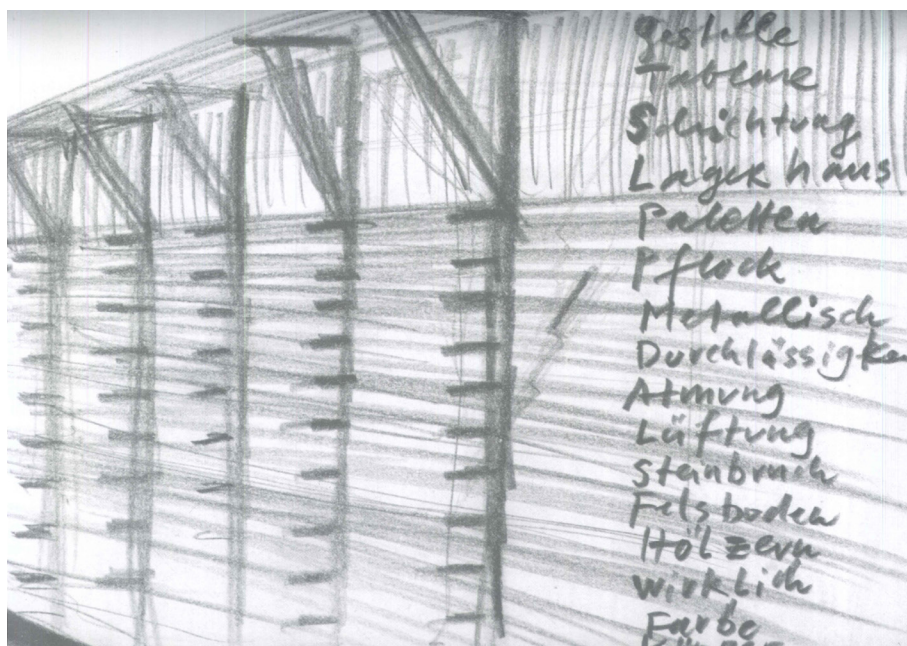 Gestelle
Tablare
Schichtung
Lagerhaus
Paletten
Pflock
Metallisch
Durchlässigkei
Atmung
Lüftung
Steinbruch
Felsboden
Hölzern
wirklich
Farbe